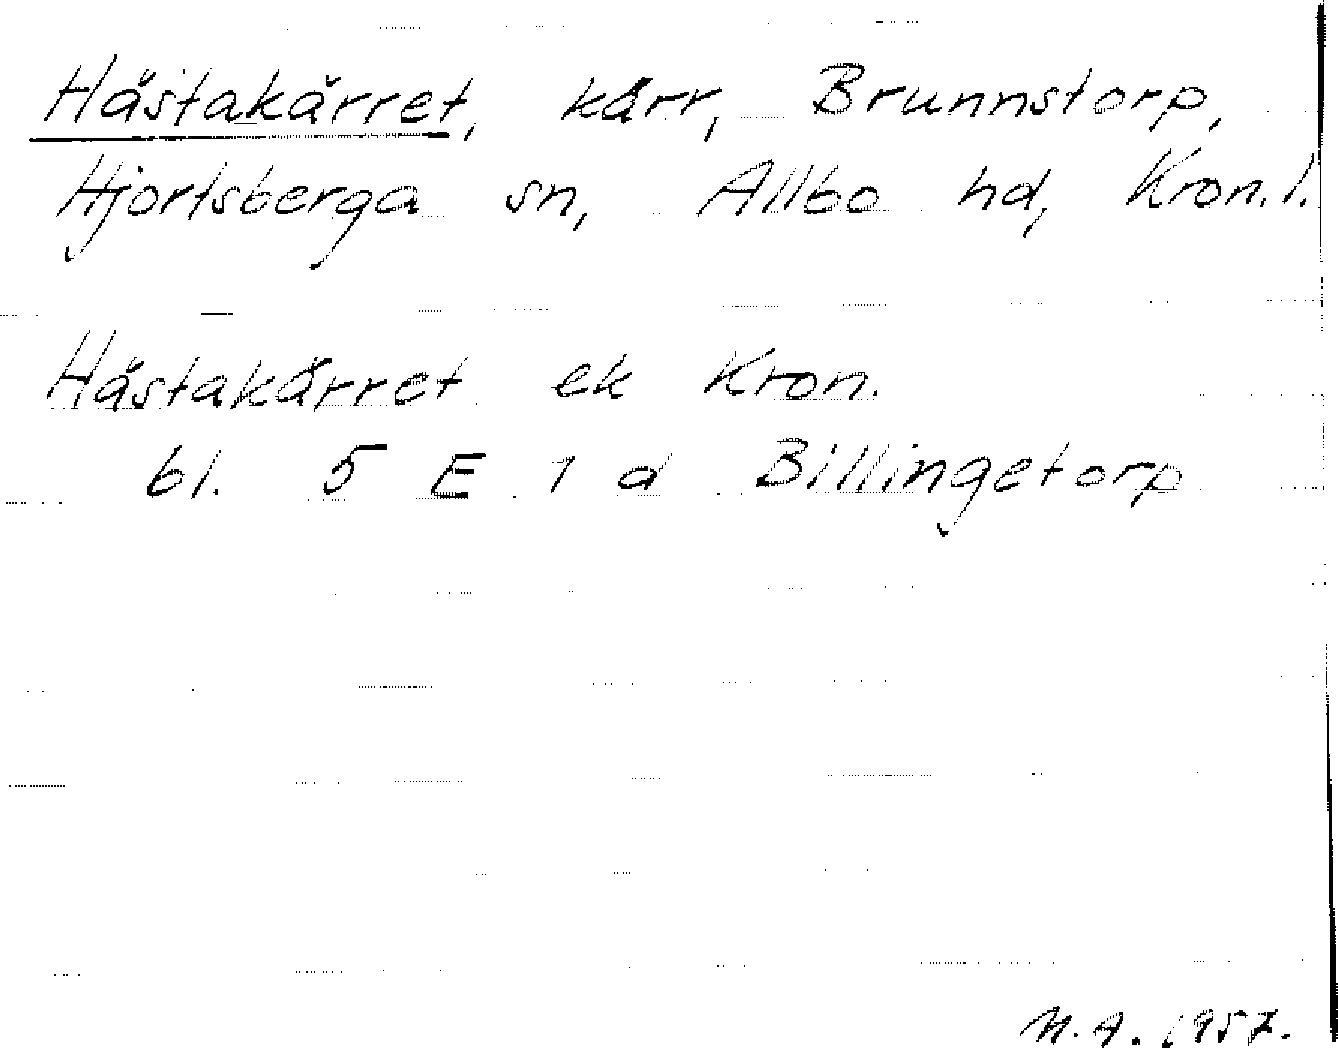 Hästakärret, kärr, Brunnstorp,
Hjortsberga sn, Allbo hd, Kron.l.
Hästakärret ek Kron.
bl. 5 E 1 d Billingetorp
N.A. 1957.